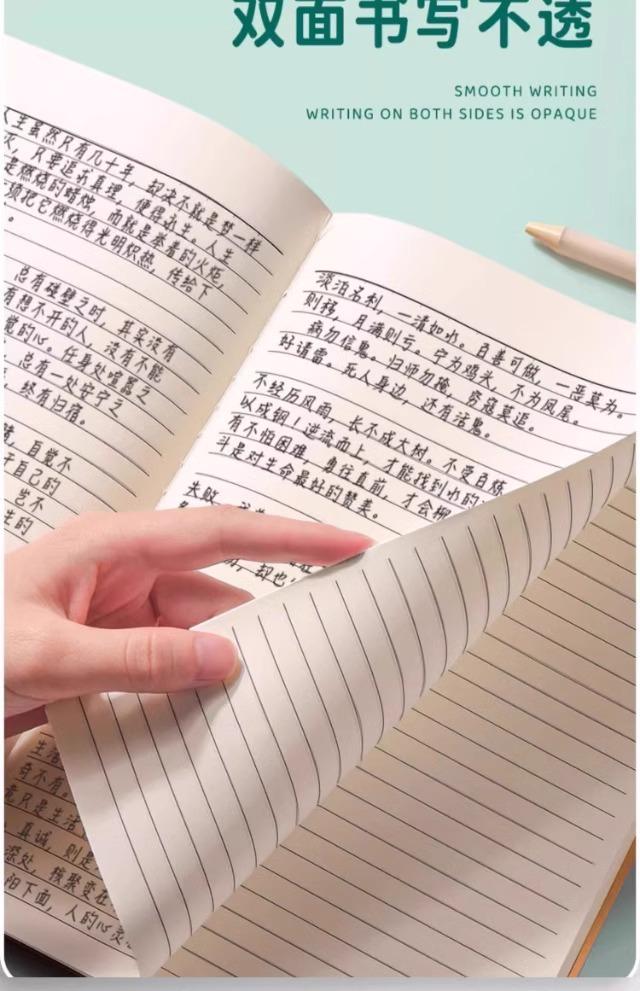 双面书写不透
SMOOTH WRITING
WRITING ON BOTH SIDES IS OPAQUE
人生虽然只有几十年，却决不就是梦一样
，只要追求真理，便得永生。人生
是燃烧的蜡烛，而就是举着的火炬，
须把它燃烧得光明炽热，传给下
。
总有碰壁之时，其实没有
有想不开的人，没有不能
觉的心。任身处喧嚣之
，总有一处安宁之
，终有归宿。
自觉不
于自己的
岂不
生的
淡泊名利，一清如水。百善可做，一恶莫为。
则移，月满则亏。宁为鸡头，不为凤尾。
病勿信鬼。归师勿掩，穷寇莫追。
好请雷。死人身边，还有活鬼。
不经历风雨，长不成大树。不受百炼
以成钢！逆流而上，才能找到水的
有不怕困难，勇往直前，才会
斗是对生命最好的赞美。
失败
，却也
生活
奇不有。
竟只是生活
真诚，则是
深处，核聚变在
阳下面，人的心灵